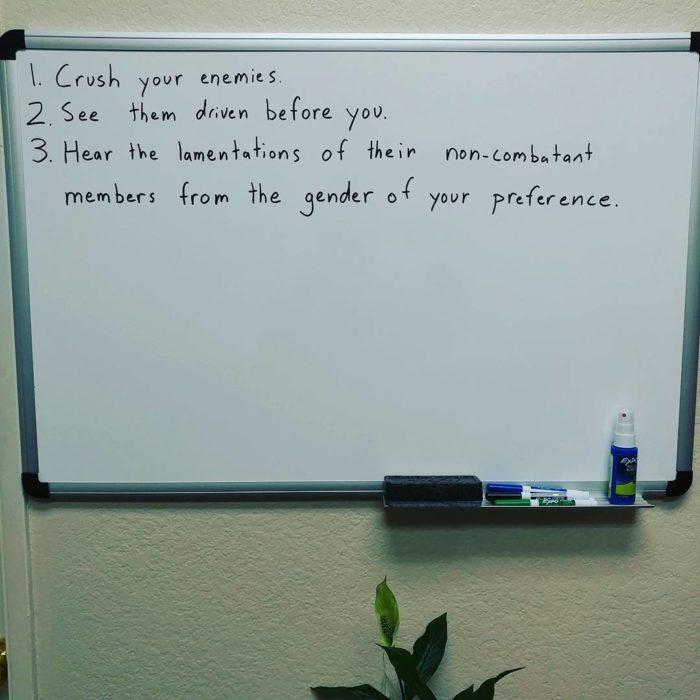 1. Crush your enemies.
2. See them driven before you.
3. Hear the lamentations of their non-combatant
members from the gender of your preference.
EXPO
Expo